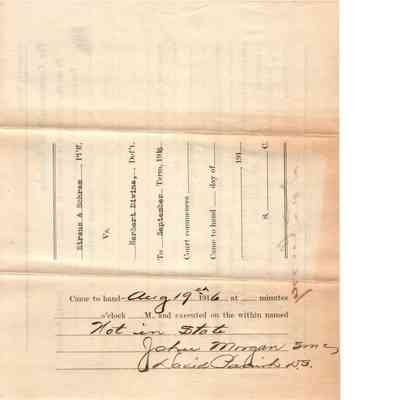 Straus & Schram Pl'ff.
Vs.
Herbert Divine, Def't.
To September Term, 1916
Court commences
Came to hand day of
191
S. C.
Came to hand Aug 19th 1916 at minutes
o'clock M, and executed on the within named
Not in State
John Morgan
David Parrish D.S.